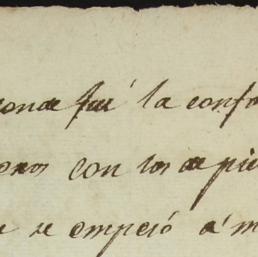 onde fué la confo
con los de pie
se empesó á m